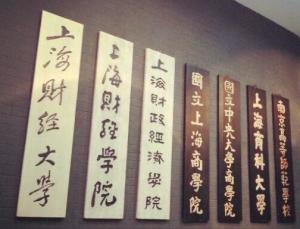 上海财经大學
上海財經学院
上海財政經濟學院
國立上海商學院
國立中央大學商學院
上海商科大學
南京高等師範學校